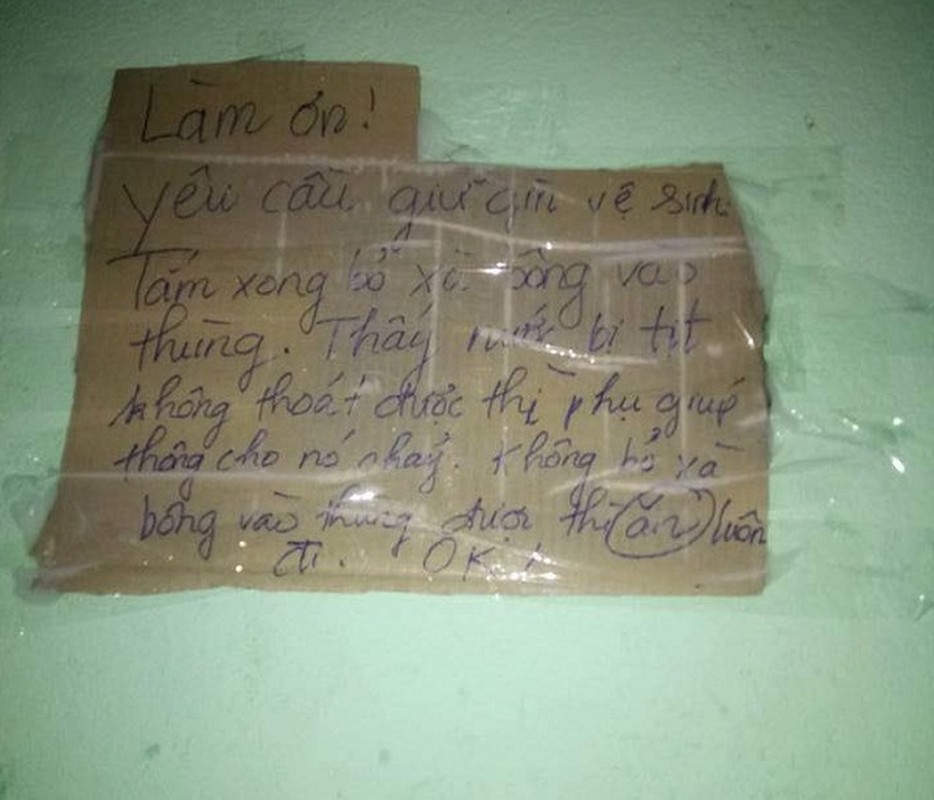 Làm ơn!
yêu cầu giữ gìn vệ sinh
Tắm xong bỏ xà bông vào
thùng. Thấy nước bị tịt
không thoát được thì phụ giúp
thông cho nó chảy. Không bỏ xà
bông vào thùng được thì ăn luôn
đi. OK!